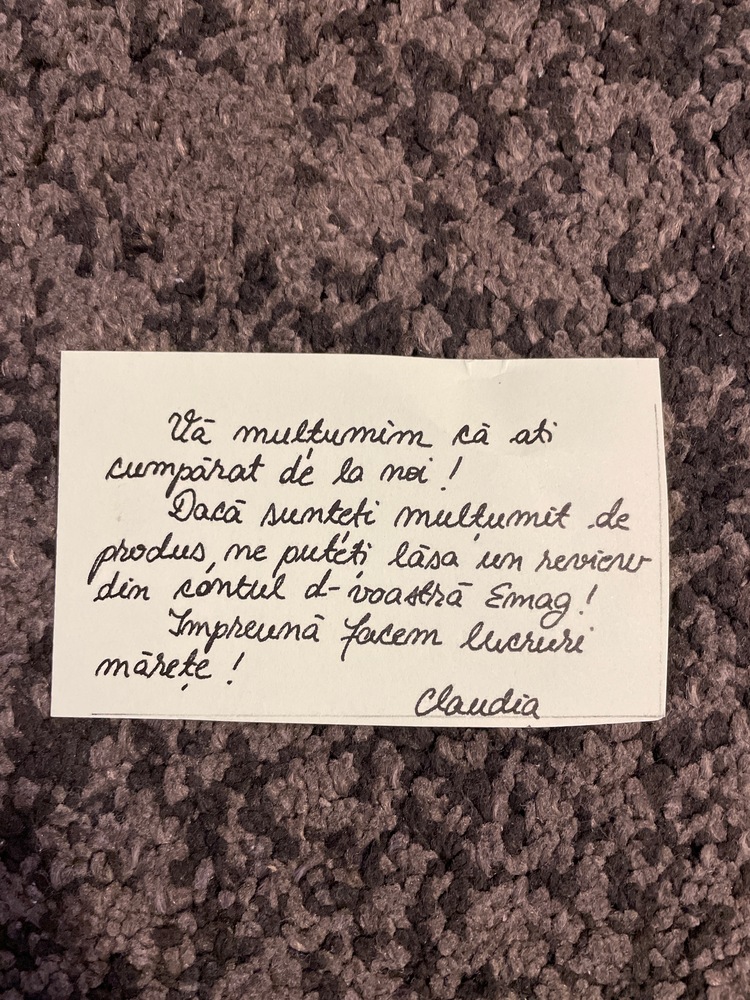 Vă mulțumim că ați
cumpărat de la noi !
Dacă sunteți mulțumit de
produs, ne puteți lăsa un review
din contul d-voastră Emag!
Împreună facem lucruri
mărețe !
Claudia